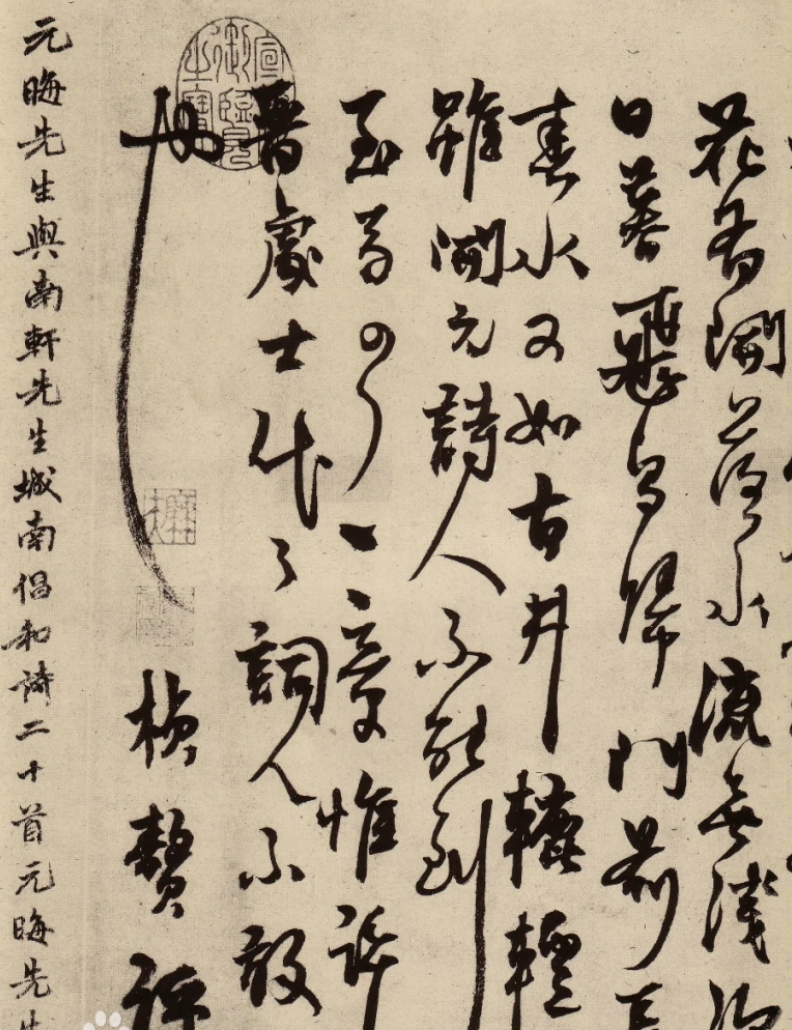 花有開落水流無淺
日暮飛鳥歸門前長
春水又如古井轆轤
雖開元詩人不能到
至若一章惟許
晉處士代之詞人不敢
也 楨贅評
元晦先生與南軒先生城南倡和詩二十首元晦先生